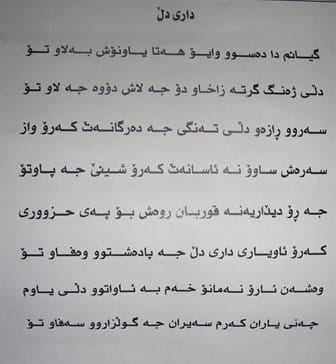 داری دڵ
گیانم دا دەسوو وایۆ هەتا یاونۆش بەلاو تۆ
دڵی ژەنگ گرتە زاخاو دۆ جە لاش دۆوە جە لاو تۆ
سەروو ڕازەو دڵی تەنگی جە دەرگانەت کەرۆ واز
سەرەش ساوۆ نە ئاسانەت کەرۆ شینێ جە پاوتۆ
جە ڕۆ دیداریەنە قوربان ڕوەش بۆ پەی حزووری
کەرۆ ئاویاری داری دڵ جە پادەشتوو وەفاو تۆ
وەشەن ئارۆ نەمانۆ خەم بە ئاواتوو دڵی یاوم
چەنی یاران کەرم سەیران جە گوڵزاروو سەفاو تۆ